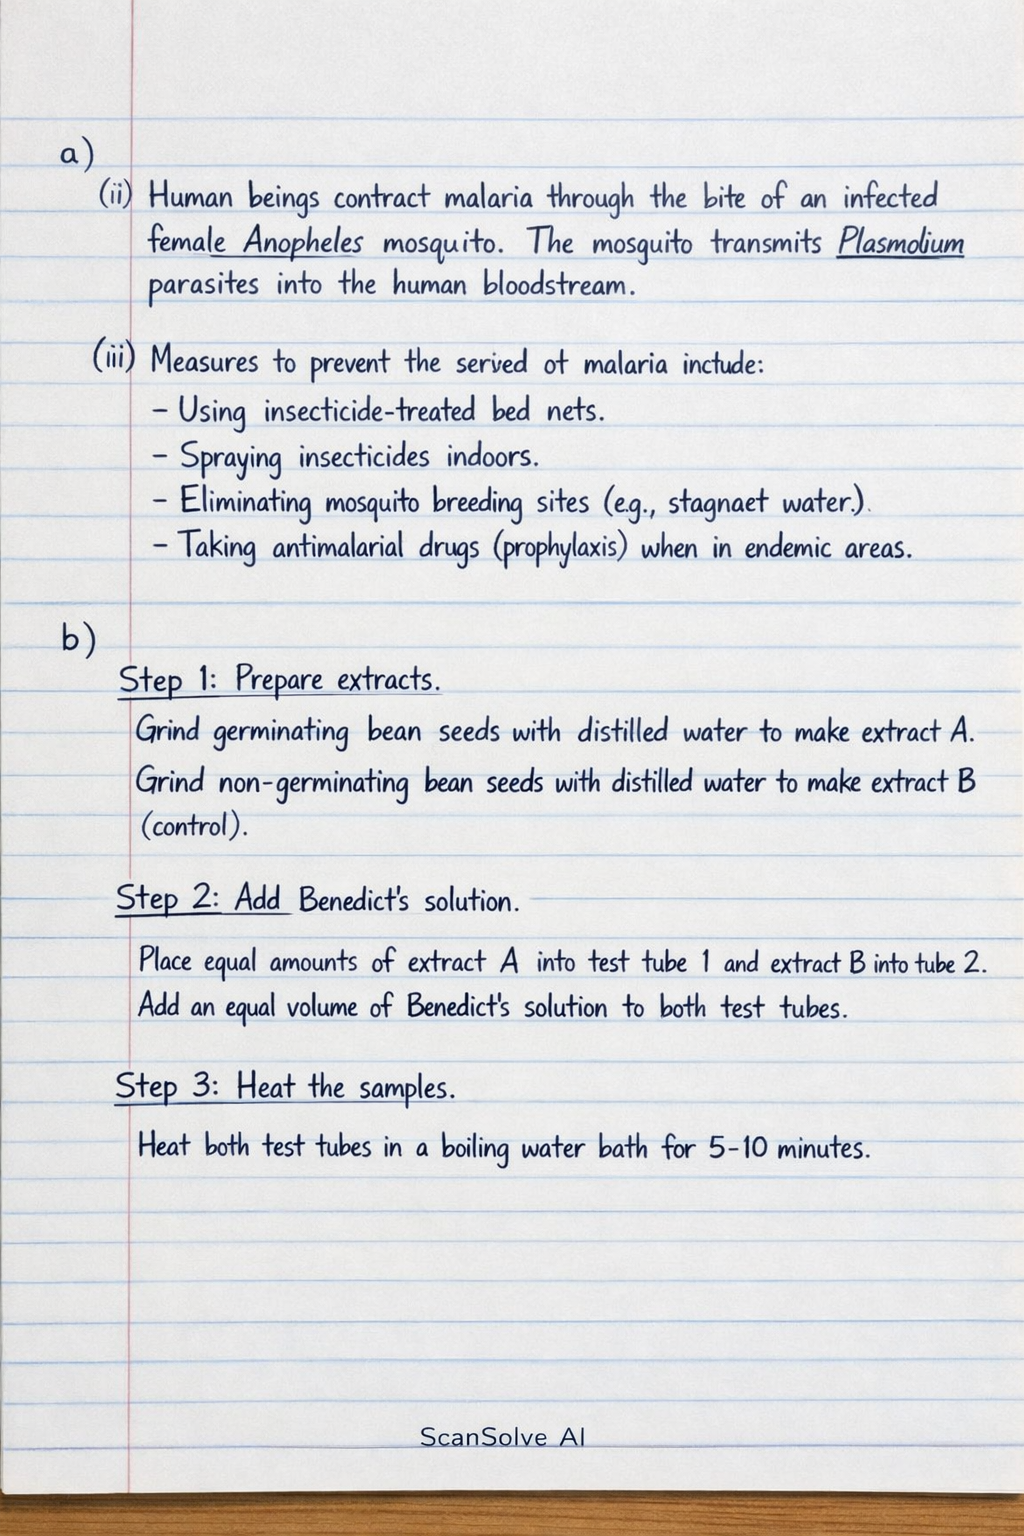 a)
(ii) Human beings contract malaria through the bite of an infected
female Anopheles mosquito. The mosquito transmits Plasmolium
parasites into the human bloodstream.
(iii) Measures to prevent the serived ot malaria include:
– Using insecticide-treated bed nets.
– Spraying insecticides indoors.
– Eliminating mosquito breeding sites (e.g., stagnaet water.).
– Taking antimalarial drugs (prophylaxis) when in endemic areas.
b)
Step 1: Prepare extracts.
Grind germinating bean seeds with distilled water to make extract A.
Grind non-germinating bean seeds with distilled water to make extract B
(control).
Step 2: Add Benedict's solution.
Place equal amounts of extract A into test tube 1 and extract B into tube 2.
Add an equal volume of Benedict's solution to both test tubes.
Step 3: Heat the samples.
Heat both test tubes in a boiling water bath for 5-10 minutes.
ScanSolve AI